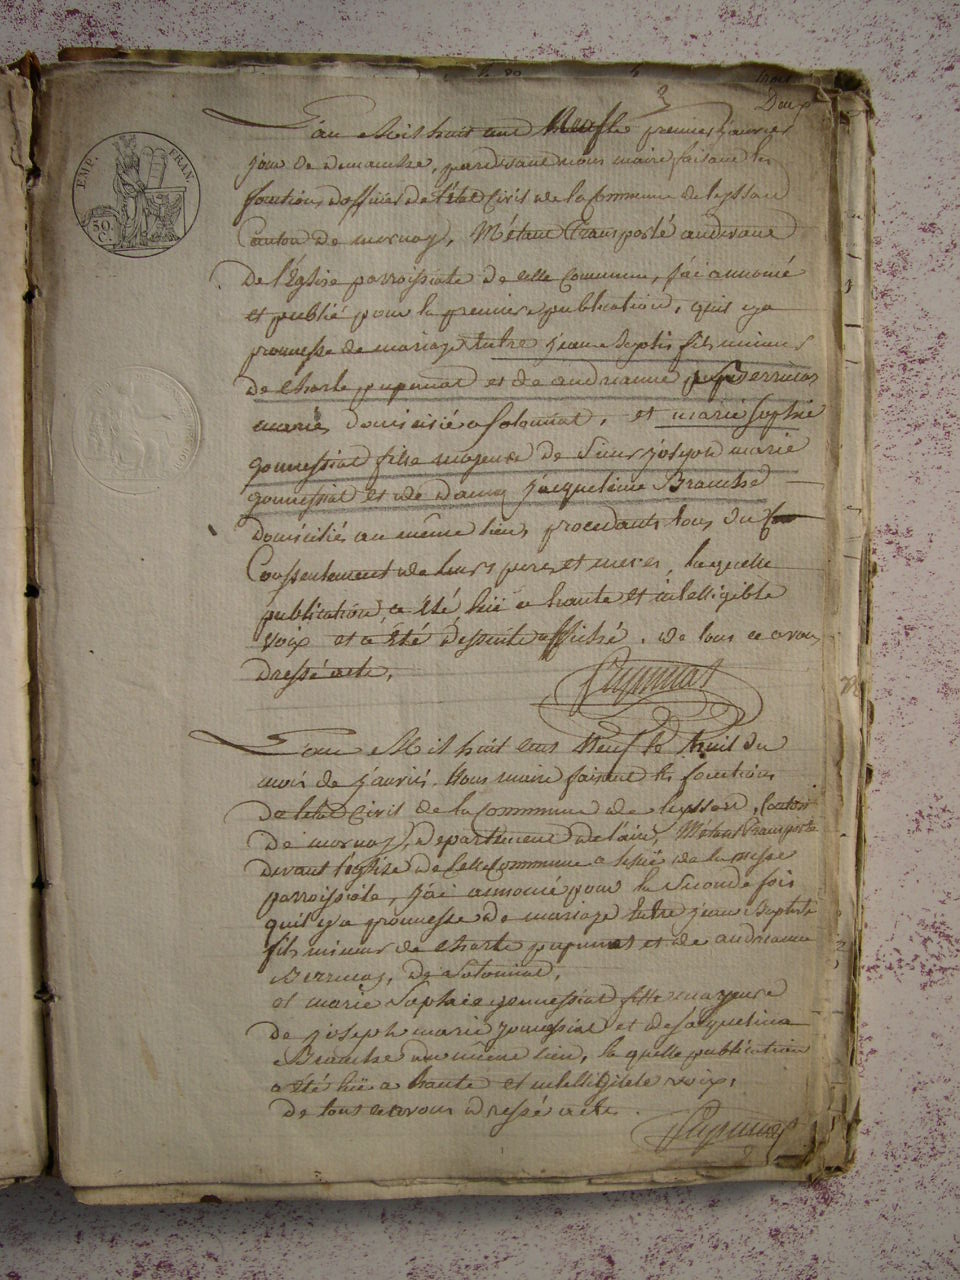 3
trois
Deux
L'an Mil huit cent Neuf le premier janvier
jour de dimanche, pardevant nous maire faisant les
fonctions d'officier de l'état Civil de la Commune de leyssard
Canton de mornay, M'étant transporté audevant
De l'Eglise parroissiale de cette Commune, j'ai annoncé
et publié pour la premiere publication, quil y a
promesse de mariage entre jean Baptis fils mineur
De Charle pupunat et de andrianne Bermas
mariés domicilié a Solomiat, et marie Sophie
gonnessiat fille majeure de Sieur josph marie
gonnessiat et de Dame jacqueline Branche
Domiciliés au même lieu, procedants tous du
Consentement de leurs peres et meres, la quelle
publication, a Eté luë a haute et intelligible
voix et a Eté Desuite affiché. de tout ce avons
Dressé acte.
EMP. FRAN.
50 C.
L'an Mil huit cent Neuf le huit du
mois de janvier. Nous maire faisant les fonctions
De l'etat Civil de la Commune de leyssard, Canton
De mornay, Departement de l'ain, M'étant transporté
Devant l'église de Cette Commune a lissuë de la messe
parroissiale, j'ai annoncé pour la Seconde fois
quil y a promesse de mariage entre jean Baptiste
fils mineur de Charle pupunat et de andrianne
Bermas, de Solomiat,
et marie Sophie gonnessiat fille mageure
de joseph marie gonnessiat et de jacquelina
Branche du même lieu, la quelle publication
a été luë a haute et intelligible voix,
De tout ce avons dressé acte.